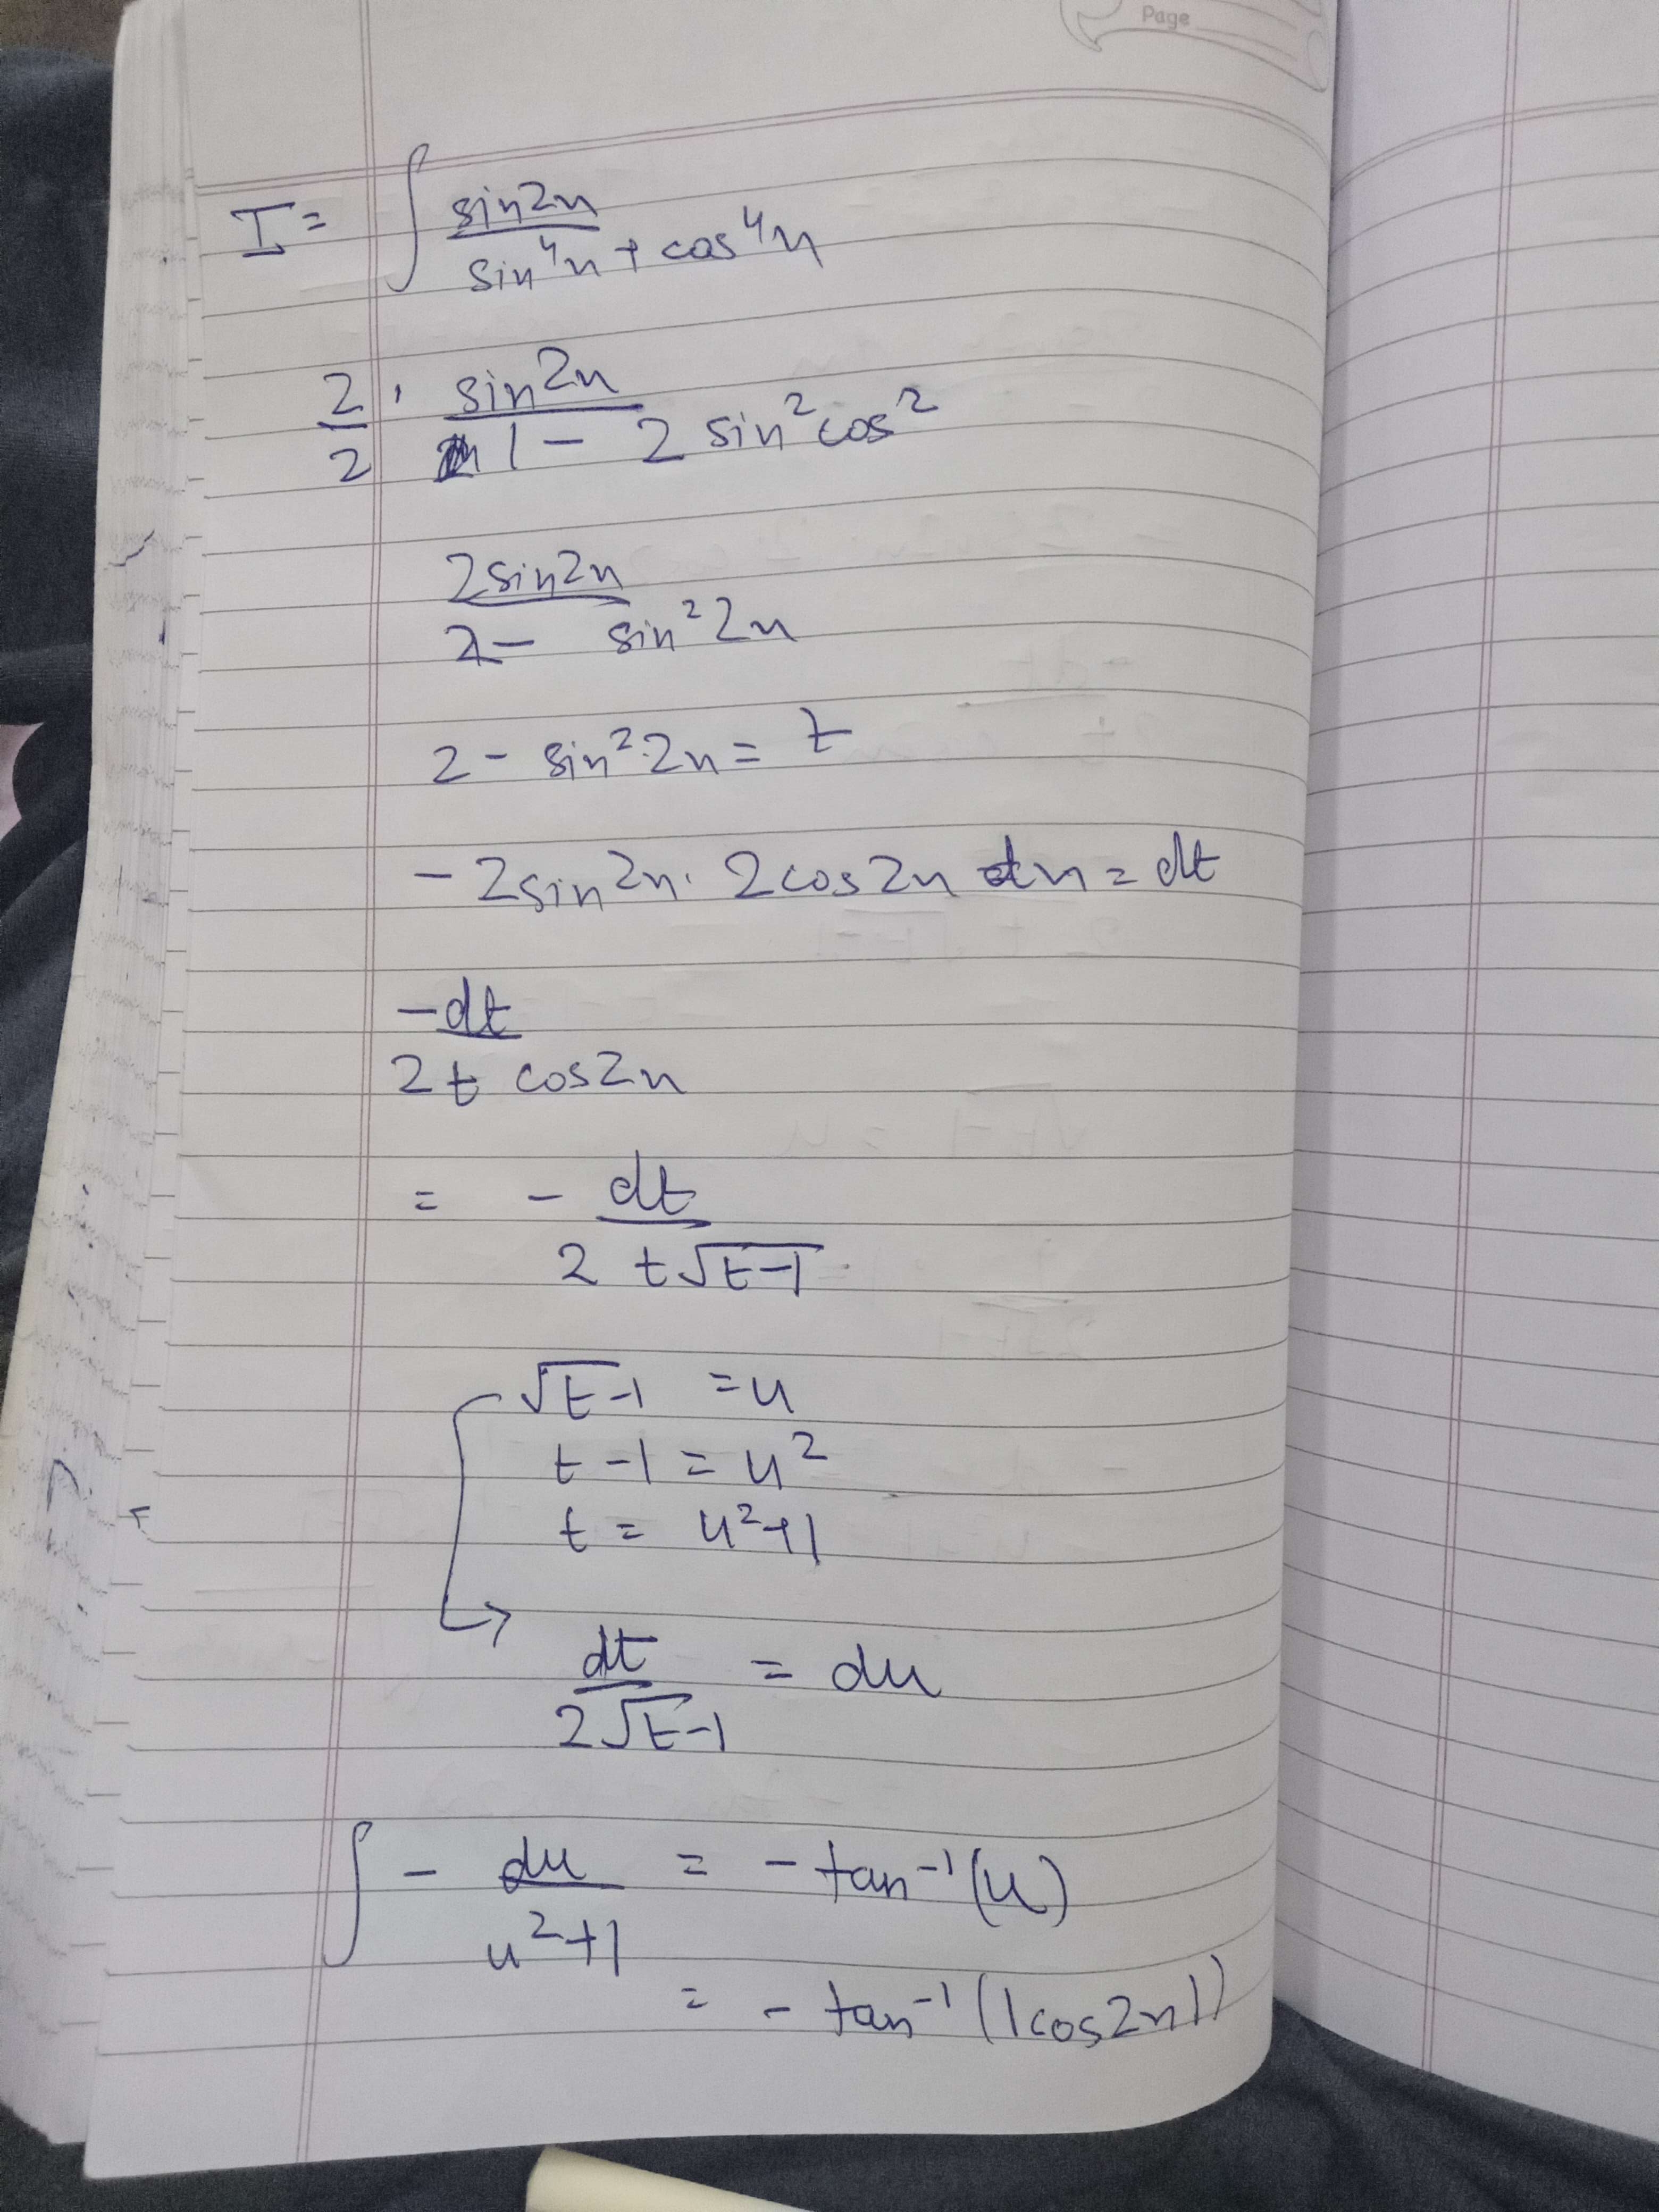 Page
I = ∫ sin2x / sin⁴x + cos⁴x
2/2 · sin2x / 1 - 2 sin²cos²
2sin2x / 2 - sin²2x
2 - sin²2x = t
- 2sin2x · 2cos2x dx = dt
-dt / 2t cos2x
= - dt / 2 t√t-1
√t-1 = u
t - 1 = u²
t = u²+1
dt / 2√t-1 = du
∫ - du / u²+1 = - tan⁻¹(u)
= - tan⁻¹(|cos2x|)